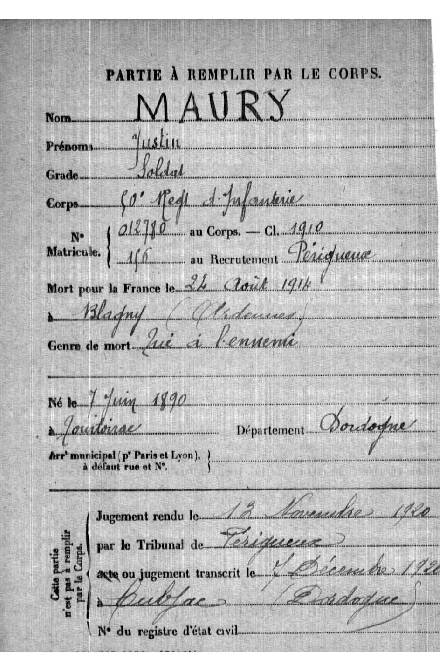 PARTIE À REMPLIR PAR LE CORPS.
Nom MAURY
Prénoms Justin
Grade Soldat
Corps 50e Regt d'Infanterie
N° Matricule. { 012780 au Corps. — Cl. 1910
156 au Recrutement Périgueux
Mort pour la France le 24 Août 1914
à Blagny (Ardennes)
Genre de mort Tué à l'ennemi
Né le 7 Juin 1890
à Tourtoirac Département Dordogne
Arrt municipal (pr Paris et Lyon), à défaut rue et N°. }
Cette partie n'est pas à remplir par le Corps.
Jugement rendu le 12 Novembre 1920
par le Tribunal de Périgueux
acte ou jugement transcrit le 7 Décembre 1920
à Cubjac (Dordogne)
N° du registre d'état civil